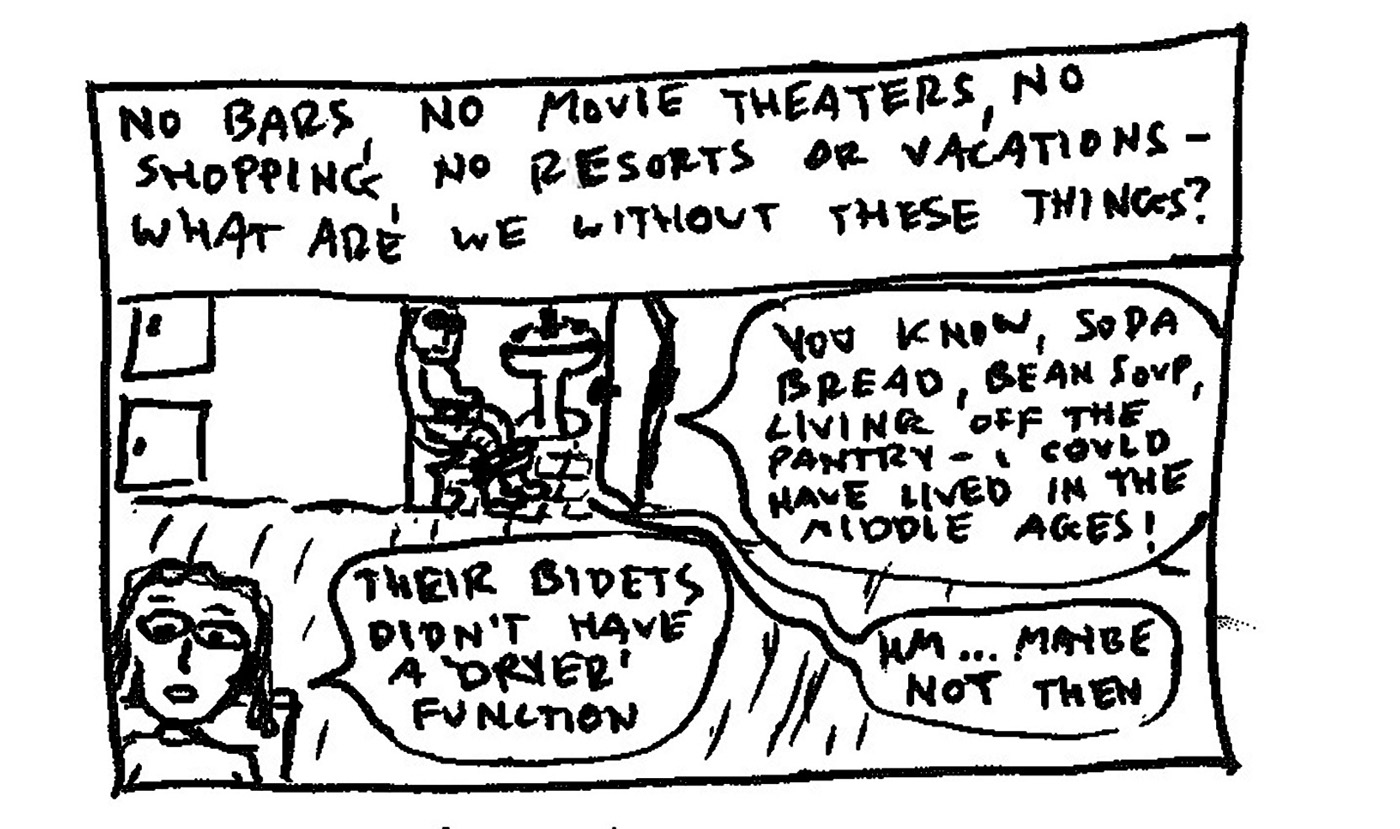 NO BARS, NO MOVIE THEATERS, NO
SHOPPING, NO RESORTS OR VACATIONS -
WHAT ARE WE WITHOUT THESE THINGS?
YOU KNOW, SODA
BREAD, BEAN SOUP,
LIVING OFF THE
PANTRY - I COULD
HAVE LIVED IN THE
MIDDLE AGES!
THEIR BIDETS
DIDN'T HAVE
A 'DRYER'
FUNCTION
HM... MAYBE
NOT THEN